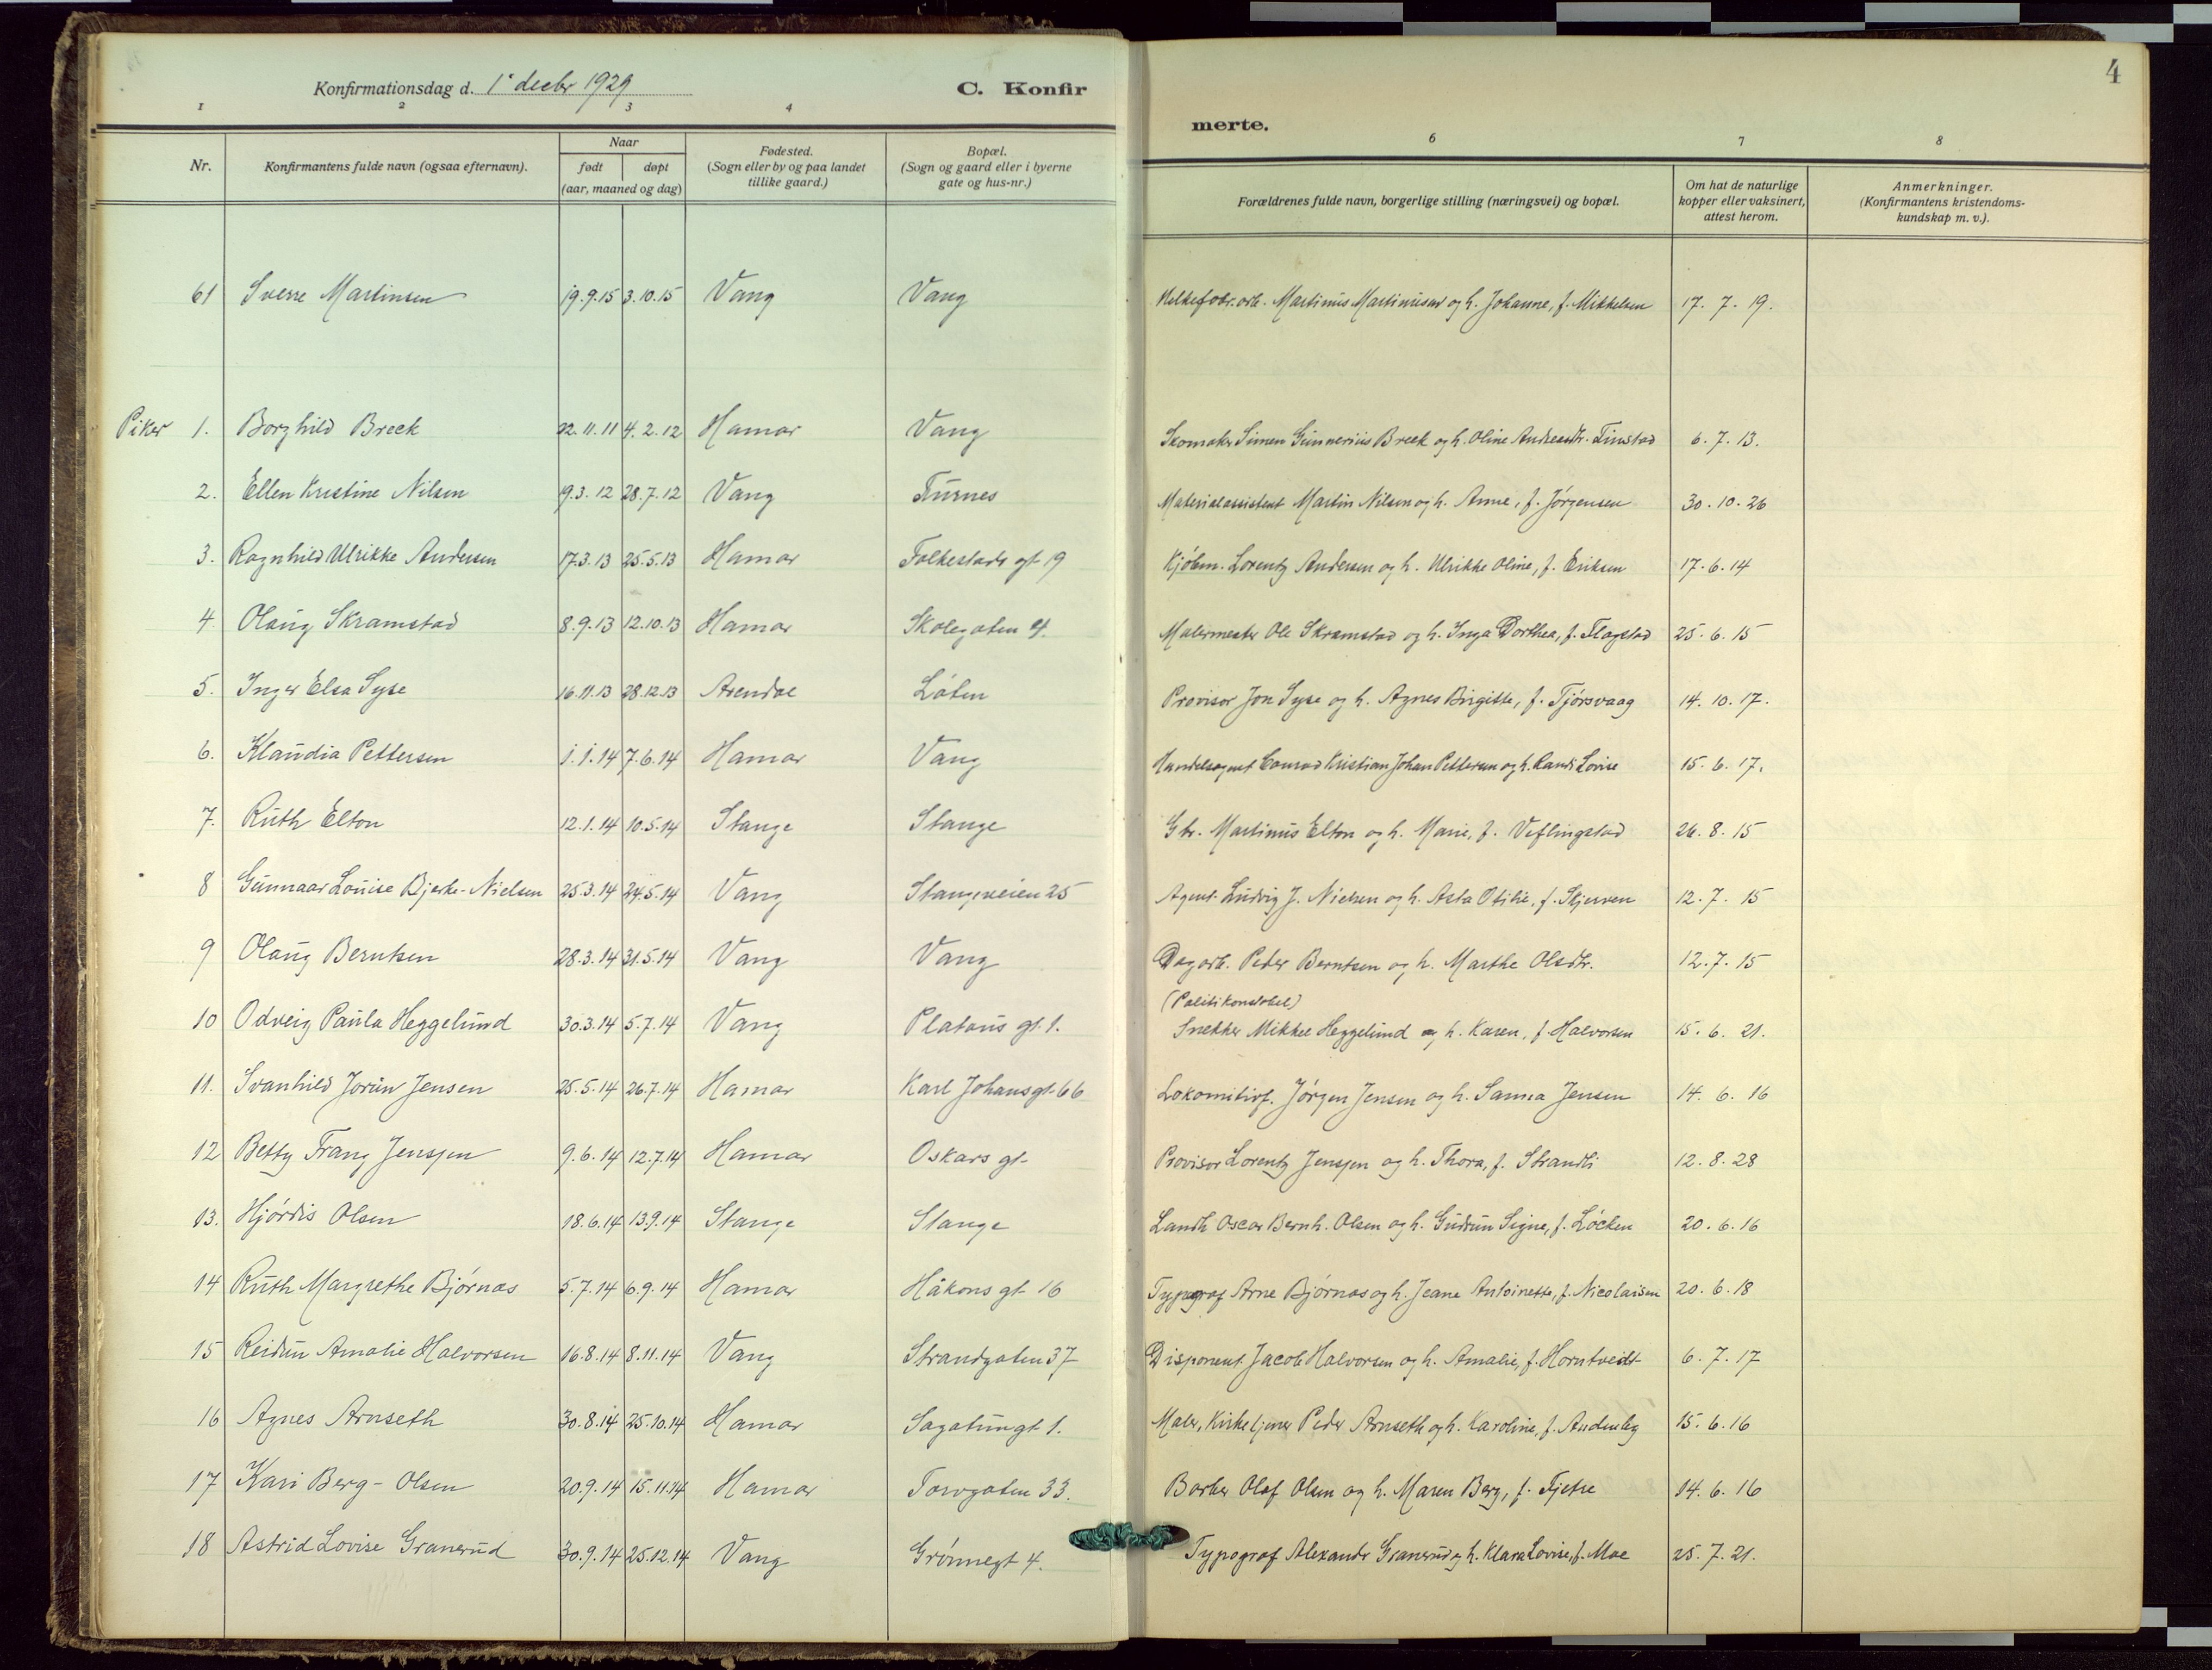 Konfirmationsdag d. 1' decbr 1929
C. Konfir
merte.
4
1 2 3 4 6 7 8
Nr.
Konfirmantens fulde navn (ogsaa efternavn).
Naar
født døpt
(aar, maaned og dag)
Fødested.
(Sogn eller by og paa landet
tillike gaard.)
Bopæl.
(Sogn og gaard eller i byerne
gate og hus-nr.)
Forældrenes fulde navn, borgerlige stilling (næringsvei) og bopæl.
Om hat de naturlige
kopper eller vaksinert,
attest herom.
Anmerkninger.
(Konfirmantens kristendoms-
kundskap m. v.).
61 Sverre Martinsen 19.9.15 3.10.15 Vang Vang Melkefabr.arb. Martinus Martinusen og h. Johanne, f. Mikkelsen 17. 7. 19.
Piker 1. Borghild Breck 22.11.11 4.2.12 Hamar Vang Skomaker Simen Gunnerius Breek og h. Oline Andreasdtr. Finstad 6. 7. 13.
2. Ellen Kristine Nilsen 19.3.12 28.7.12 Vang Furnes Materialassistent Martin Nilsen og h. Anne, f. Jørgensen 30. 10. 26
3. Ragnhild Ulrikke Andersen 17.3.13 25.5.13 Hamar Folkestads gt 19 Kjøbm. Lorentz Andersen og h. Ulrikke Oline, f. Eriksen 17. 6. 14
4. Olaug Skramstad 8.9.13 12.10.13 Hamar Skolegaten 4. Malermester Ole Skramstad og h. Inga Dorthea, f. Flagstad 25. 6. 15
5. Inger Elsa Syse 16.11.13 28.12.13 Arendal Løten Provisor Jon Syse og h. Agnes Birgitte, f. Tjørsvaag 14. 10. 17.
6. Klaudia Pettersen 1.1.14 7.6.14 Hamar Vang Handelsagent Conrad Kristian Johan Pettersen og h. Randi Lovise 15. 6. 17.
7. Ruth Elton 12.1.14 10.5.14 Stange Stange Gbr. Martinus Elton og h. Marie, f. Veflingstad 26. 8. 15
8 Gunnaar Louise Bjerke-Nielsen 25.3.14 24.5.14 Vang Stangeveien 25 Agent Ludvig J. Nielsen og h. Asta Otilie, f. Skjerven 12. 7. 15
9 Olaug Berntsen 28.3.14 31.5.14 Vang Vang Dagarb. Peder Berntsen og h. Marthe Olsdtr. 12. 7. 15
(Politikonstabel)
10 Odveig Paula Heggelund 30.3.14 5.7.14 Vang Platous gt. 1. Snekker Mikkel Heggelund og h. Karen, f. Halvorsen 15. 6. 21.
11. Svanhild Jorun Jensen 25.5.14 26.7.14 Hamar Karl Johansgt. 66 Lokomitivf. Jørgen Jensen og h. Sanna Jensen 14. 6. 16
12 Betty Frang Jenssen 9.6.14 12.7.14 Hamar Oskars gt. Provisor Lorentz Jenssen og h. Thora, f. Strandli 12. 8. 28
13. Hjørdis Olsen 18.6.14 13.9.14 Stange Stange Landh. Oscar Bernh. Olsen og h. Gudrun Signe, f. Løcken 20. 6. 16
14 Ruth Margrethe Bjørnas 5.7.14 6.9.14 Hamar Håkons gt 16 Typograf Arne Bjørnas og h. Jeane Antoinette, f. Nicolaisen 20. 6. 18
15 Reidun Amalie Halvorsen 16.8.14 8.11.14 Vang Strandgaten 37 Disponent Jacob Halvorsen og h. Amalie, f. Horntvedt 6. 7. 17
16 Agnes Arnseth 30.8.14 25.10.14 Hamar Sagatungt 1. Maler, Kirketjener Peder Arnseth og h. Karoline, f. 15. 6. 16
17 Kari Berg-Olsen 20.9.14 15.11.14 Hamar Torvgaten 33. Barber Olaf Olsen og h. Maren Berg, f. Fjetre 14. 6. 16
18 Astrid Lovise Granerud 30.9.14 25.12.14 Vang Grønnegt 4. Typograf Alexander Granerud og h. Klara Lovise, f. Moe 25. 7. 21.